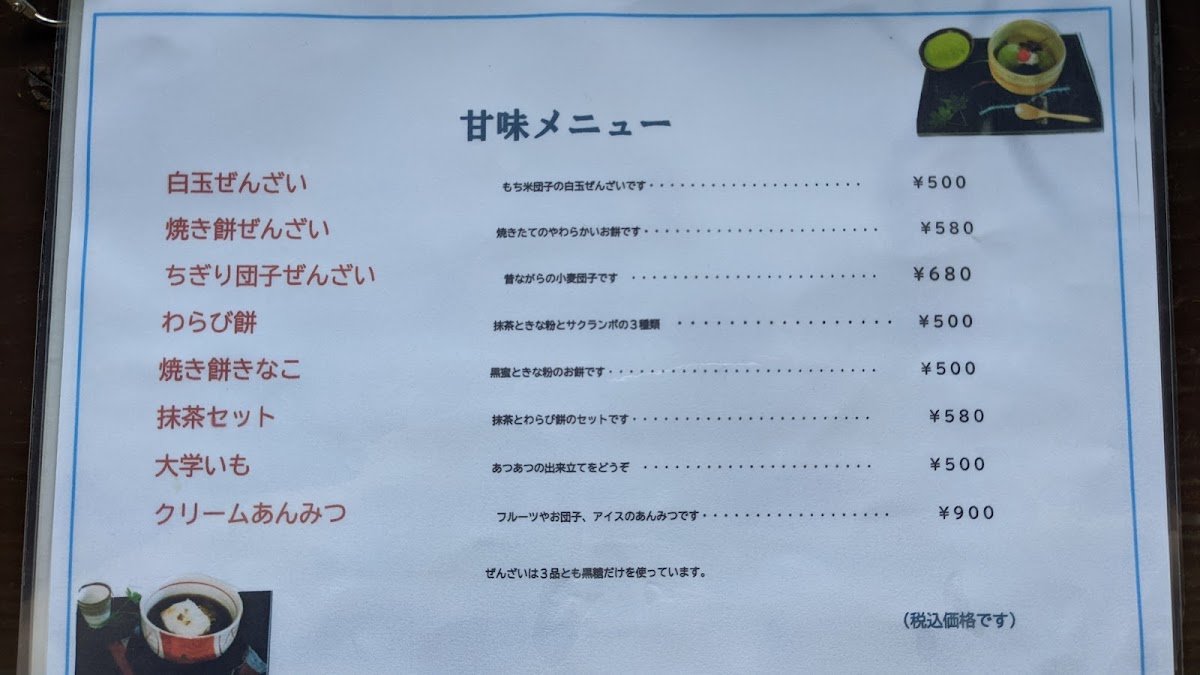 甘味メニュー
白玉ぜんざい もち米団子の白玉ぜんざいです・・・・・・・・・・・・・・・・・・・・・・ ¥500
焼き餅ぜんざい 焼きたてのやわらかいお餅です・・・・・・・・・・・・・・・・・・・・・・・ ¥580
ちぎり団子ぜんざい 昔ながらの小麦団子です ・・・・・・・・・・・・・・・・・・・・・・・・ ¥680
わらび餅 抹茶ときな粉とサクランボの3種類 ・・・・・・・・・・・・・・・・・ ¥500
焼き餅きなこ 黒蜜ときな粉のお餅です・・・・・・・・・・・・・・・・・・・・・・・・・・ ¥500
抹茶セット 抹茶とわらび餅のセットです・・・・・・・・・・・・・・・・・・・・・・・ ¥580
大学いも あつあつの出来立てをどうぞ ・・・・・・・・・・・・・・・・・・・・・・ ¥500
クリームあんみつ フルーツやお団子、アイスのあんみつです・・・・・・・・・・・・・・・・・・ ¥900
ぜんざいは3品とも黒糖だけを使っています。
(税込価格です)